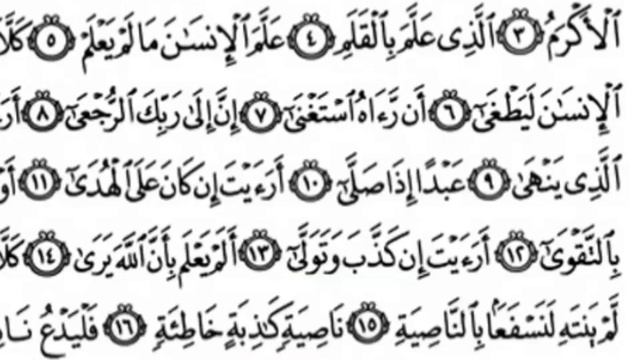 ٱلْأَكْرَمُ ٣ ٱلَّذِى عَلَّمَ بِٱلْقَلَمِ ٤ عَلَّمَ ٱلْإِنسَٰنَ مَا لَمْ يَعْلَمْ ٥ كَلَّا
ٱلْإِنسَٰنَ لَيَطْغَىٰٓ ٦ أَن رَّءَاهُ ٱسْتَغْنَىٰٓ ٧ إِنَّ إِلَىٰ رَبِّكَ ٱلرُّجْعَىٰٓ ٨
ٱلَّذِى يَنْهَىٰ ٩ عَبْدًا إِذَا صَلَّىٰٓ ١٠ أَرَءَيْتَ إِن كَانَ عَلَى ٱلْهُدَىٰٓ ١١ أَوْ
بِٱلتَّقْوَىٰٓ ١٢ أَرَءَيْتَ إِن كَذَّبَ وَتَوَلَّىٰٓ ١٣ أَلَمْ يَعْلَم بِأَنَّ ٱللَّهَ يَرَىٰ ١٤ كَلَّا
لَّمْ يَنتَهِ لَنَسْفَعًۢا بِٱلنَّاصِيَةِ ١٥ نَاصِيَةٍ كَٰذِبَةٍ خَاطِئَةٍ ١٦ فَلْيَدْعُ